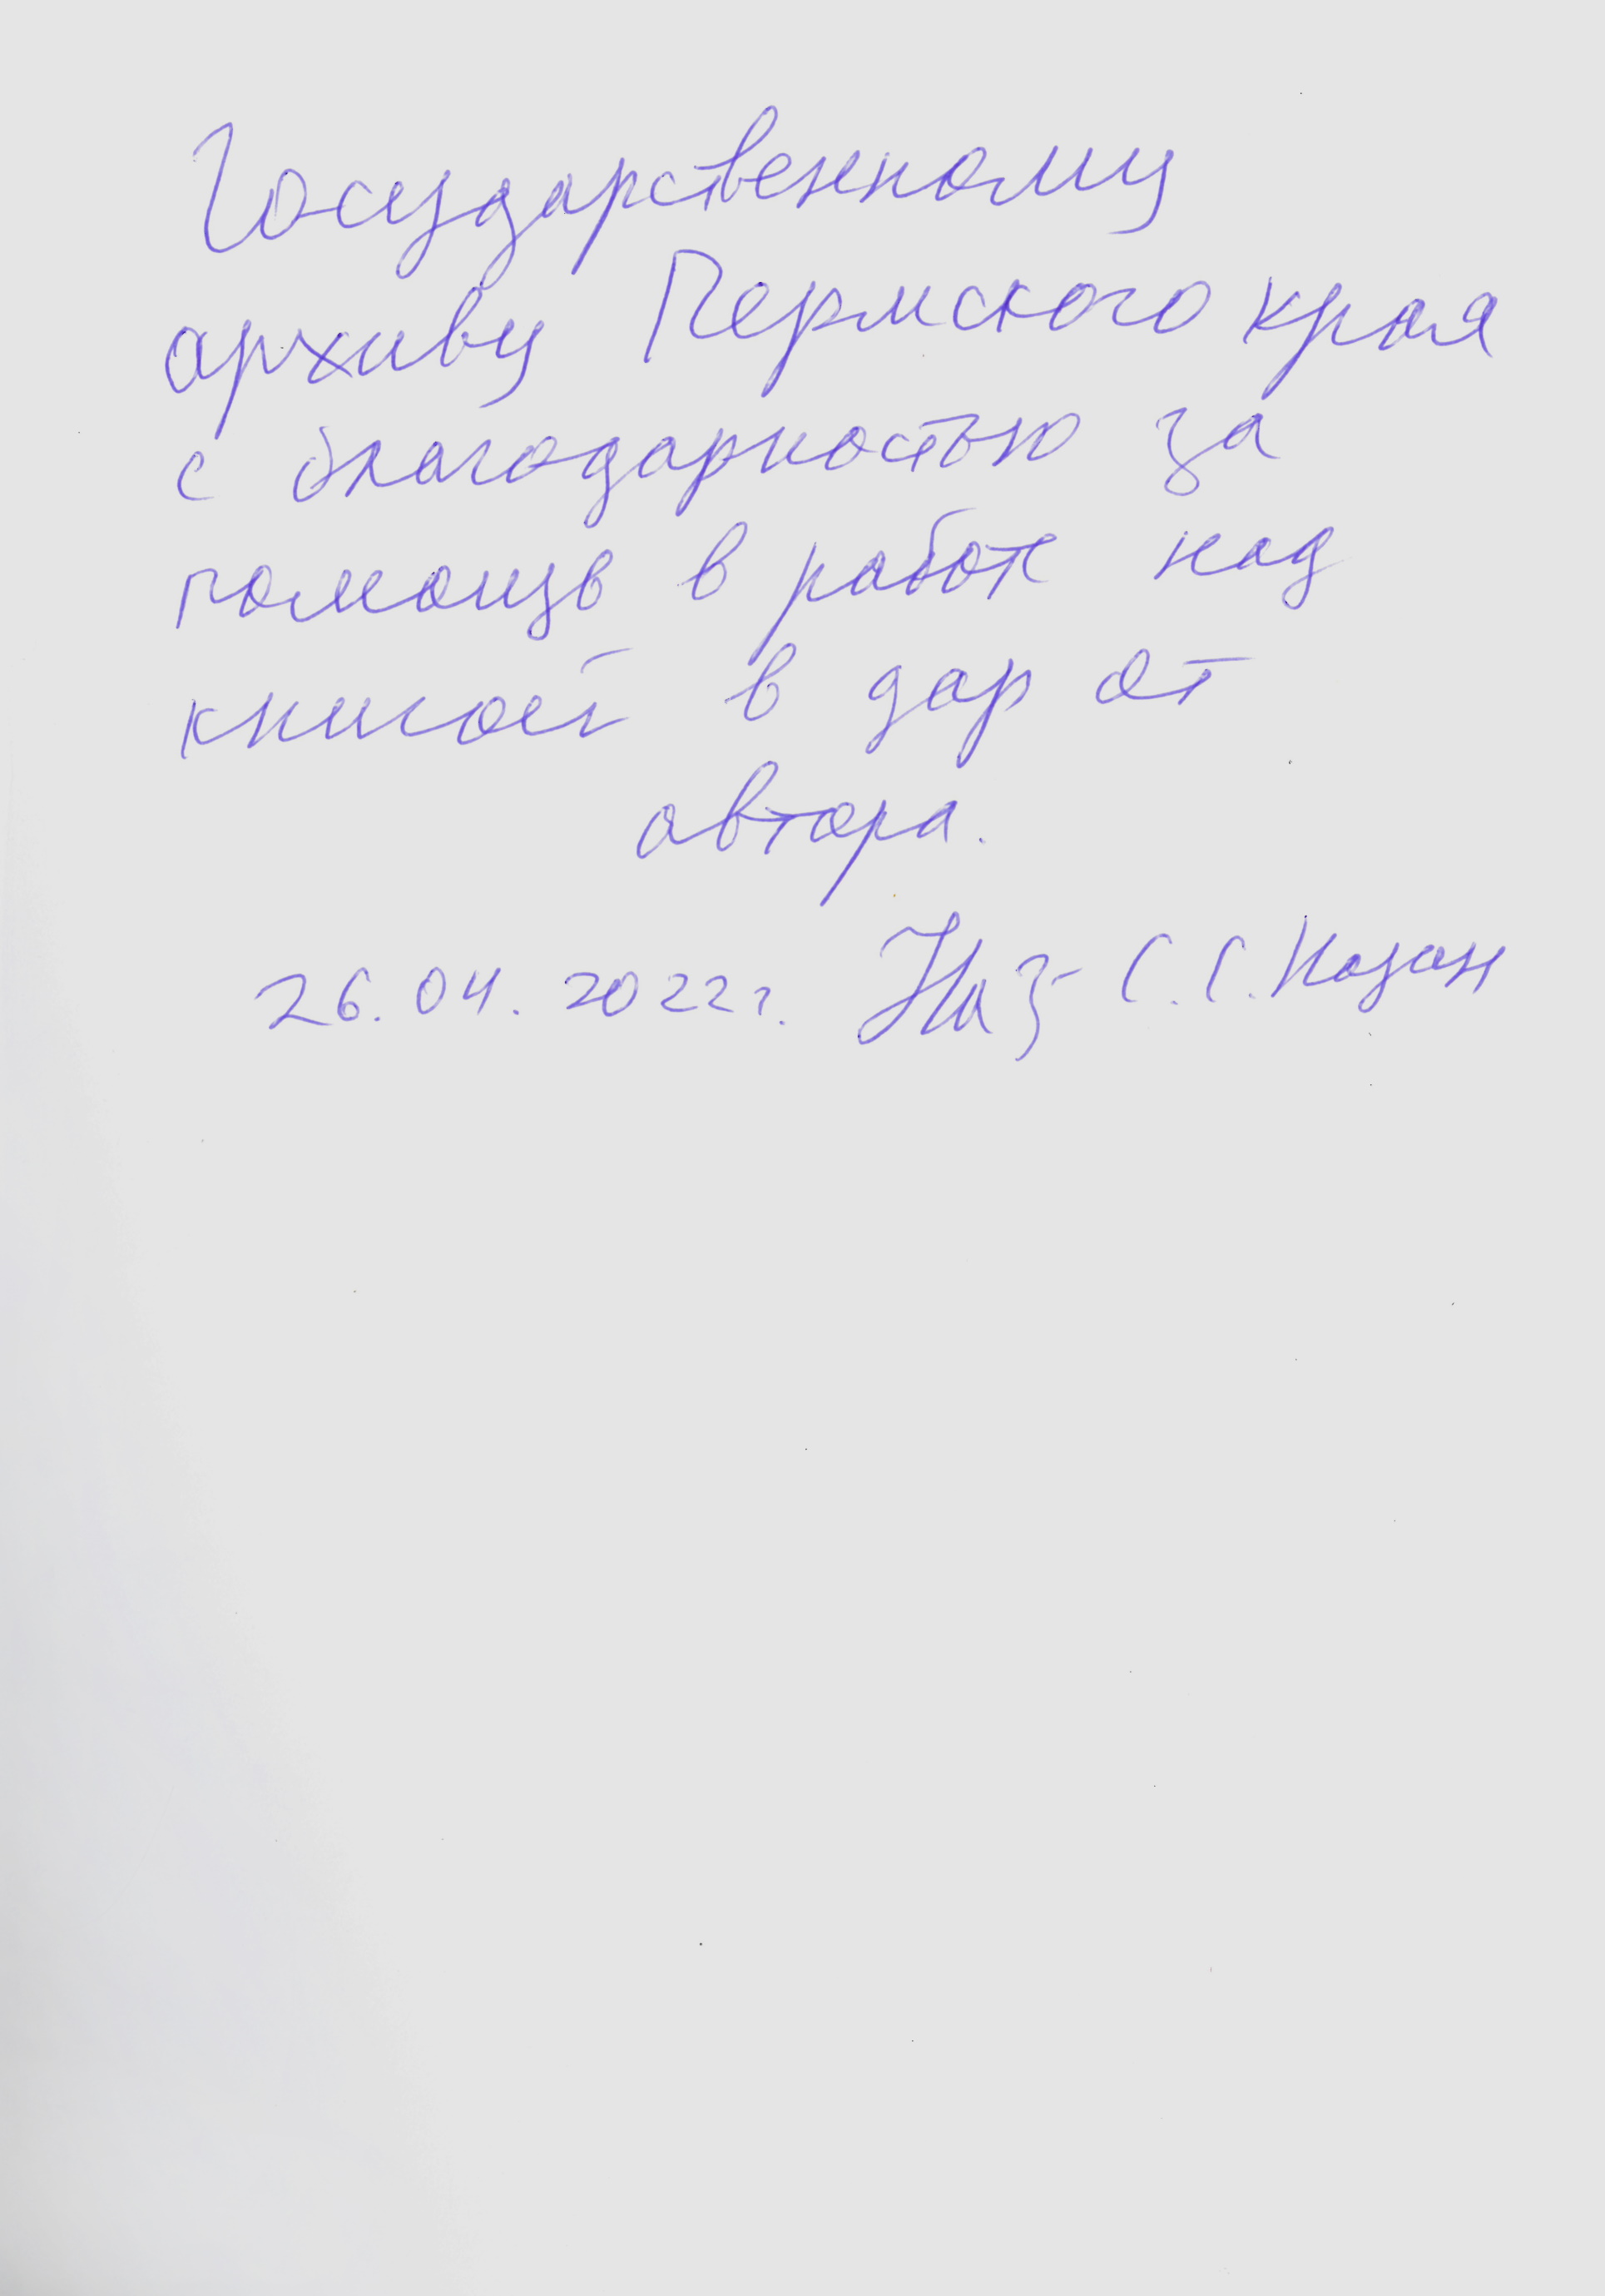 Государственному
архиву Пермского края
с благодарностью за
помощь в работе над
книгой в дар от
автора.
26.04.2022г. С.С.